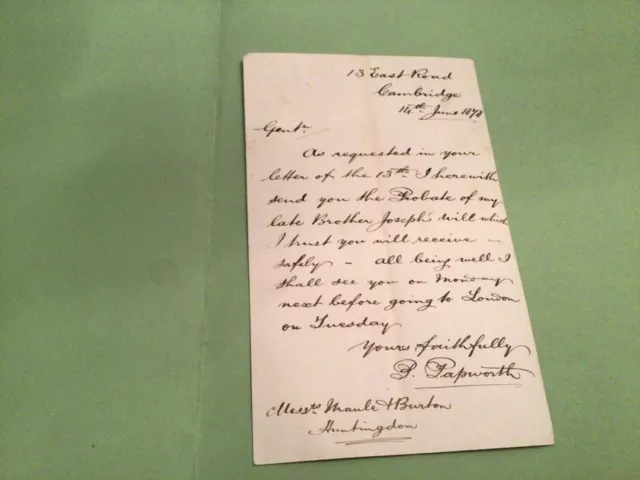 13 East Road
Cambridge
14th June 1878
Gents
As requested in your
letter of the 13th I herewith
send you the Probate of my
late Brother Joseph's will which
I trust you will receive –
safely – all being well I
shall see you on Monday
next before going to London
on Tuesday
Yours faithfully
P. Papworth
Messrs Maule & Burton
Huntingdon